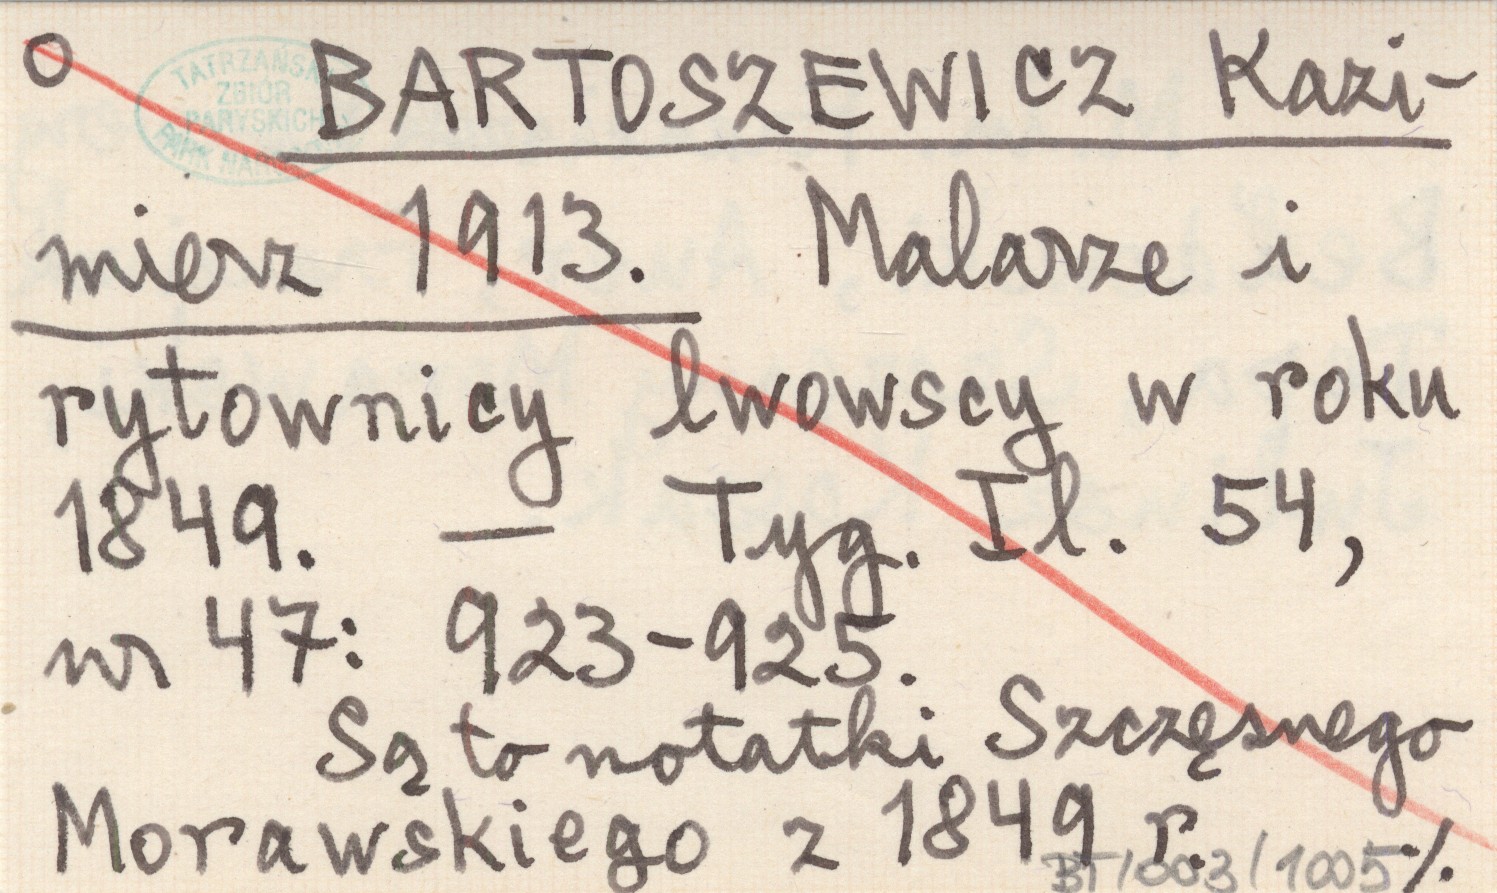 O BARTOSZEWICZ Kazi-
TATRZAŃSKI
ZBIÓR
PARYSKICH
PARK NARODOWY
mierz 1913. Malarze i
rytownicy lwowscy w roku
1849. — Tyg. Il. 54,
nr 47: 923-925.
Są to notatki Szczęsnego
Morawskiego z 1849 r. ./.
BT/003/1005